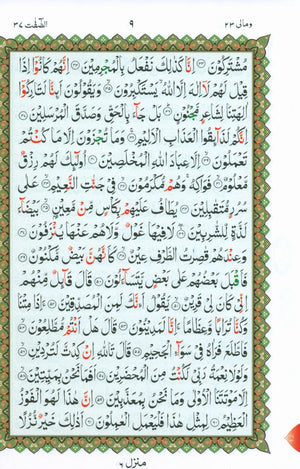 ومالی ۲۳ ۹ الصّٰفّٰت ۳۷
مُشْتَرِكُوْنَ ۝ اِنَّا كَذٰلِكَ نَفْعَلُ بِالْمُجْرِمِيْنَ ۝ اِنَّهُمْ كَانُوْٓا اِذَا
قِيْلَ لَهُمْ لَآ اِلٰهَ اِلَّا اللّٰهُ يَسْتَكْبِرُوْنَ ۝ وَيَقُوْلُوْنَ اَئِنَّا لَتَارِكُوْٓا
اٰلِهَتِنَا لِشَاعِرٍ مَّجْنُوْنٍ ۝ بَلْ جَآءَ بِالْحَقِّ وَصَدَّقَ الْمُرْسَلِيْنَ ۝
اِنَّكُمْ لَذَآئِقُوا الْعَذَابِ الْاَلِيْمِ ۝ وَمَا تُجْزَوْنَ اِلَّا مَا كُنْتُمْ
تَعْمَلُوْنَ ۝ اِلَّا عِبَادَ اللّٰهِ الْمُخْلَصِيْنَ ۝ اُولٰٓئِكَ لَهُمْ رِزْقٌ
مَّعْلُوْمٌ ۝ فَوَاكِهُ وَهُمْ مُّكْرَمُوْنَ ۝ فِيْ جَنّٰتِ النَّعِيْمِ ۝ عَلٰى
سُرُرٍ مُّتَقٰبِلِيْنَ ۝ يُطَافُ عَلَيْهِمْ بِكَاْسٍ مِّنْ مَّعِيْنٍ ۝ بَيْضَآءَ
لَذَّةٍ لِّلشّٰرِبِيْنَ ۝ لَا فِيْهَا غَوْلٌ وَّلَا هُمْ عَنْهَا يُنْزَفُوْنَ ۝
وَعِنْدَهُمْ قٰصِرٰتُ الطَّرْفِ عِيْنٌ ۝ كَاَنَّهُنَّ بَيْضٌ مَّكْنُوْنٌ ۝
فَاَقْبَلَ بَعْضُهُمْ عَلٰى بَعْضٍ يَّتَسَآءَلُوْنَ ۝ قَالَ قَآئِلٌ مِّنْهُمْ
اِنِّيْ كَانَ لِيْ قَرِيْنٌ ۝ يَّقُوْلُ اَئِنَّكَ لَمِنَ الْمُصَدِّقِيْنَ ۝ ءَاِذَا مِتْنَا
وَكُنَّا تُرَابًا وَّعِظَامًا ءَاِنَّا لَمَدِيْنُوْنَ ۝ قَالَ هَلْ اَنْتُمْ مُّطَّلِعُوْنَ ۝
فَاطَّلَعَ فَرَاٰهُ فِيْ سَوَآءِ الْجَحِيْمِ ۝ قَالَ تَاللّٰهِ اِنْ كِدْتَّ لَتُرْدِيْنِ ۝
وَلَوْلَا نِعْمَةُ رَبِّيْ لَكُنْتُ مِنَ الْمُحْضَرِيْنَ ۝ اَفَمَا نَحْنُ بِمَيِّتِيْنَ ۝
اِلَّا مَوْتَتَنَا الْاُوْلٰى وَمَا نَحْنُ بِمُعَذَّبِيْنَ ۝ اِنَّ هٰذَا لَهُوَ الْفَوْزُ
الْعَظِيْمُ ۝ لِمِثْلِ هٰذَا فَلْيَعْمَلِ الْعٰمِلُوْنَ ۝ اَذٰلِكَ خَيْرٌ نُّزُلًا
منزل ٦